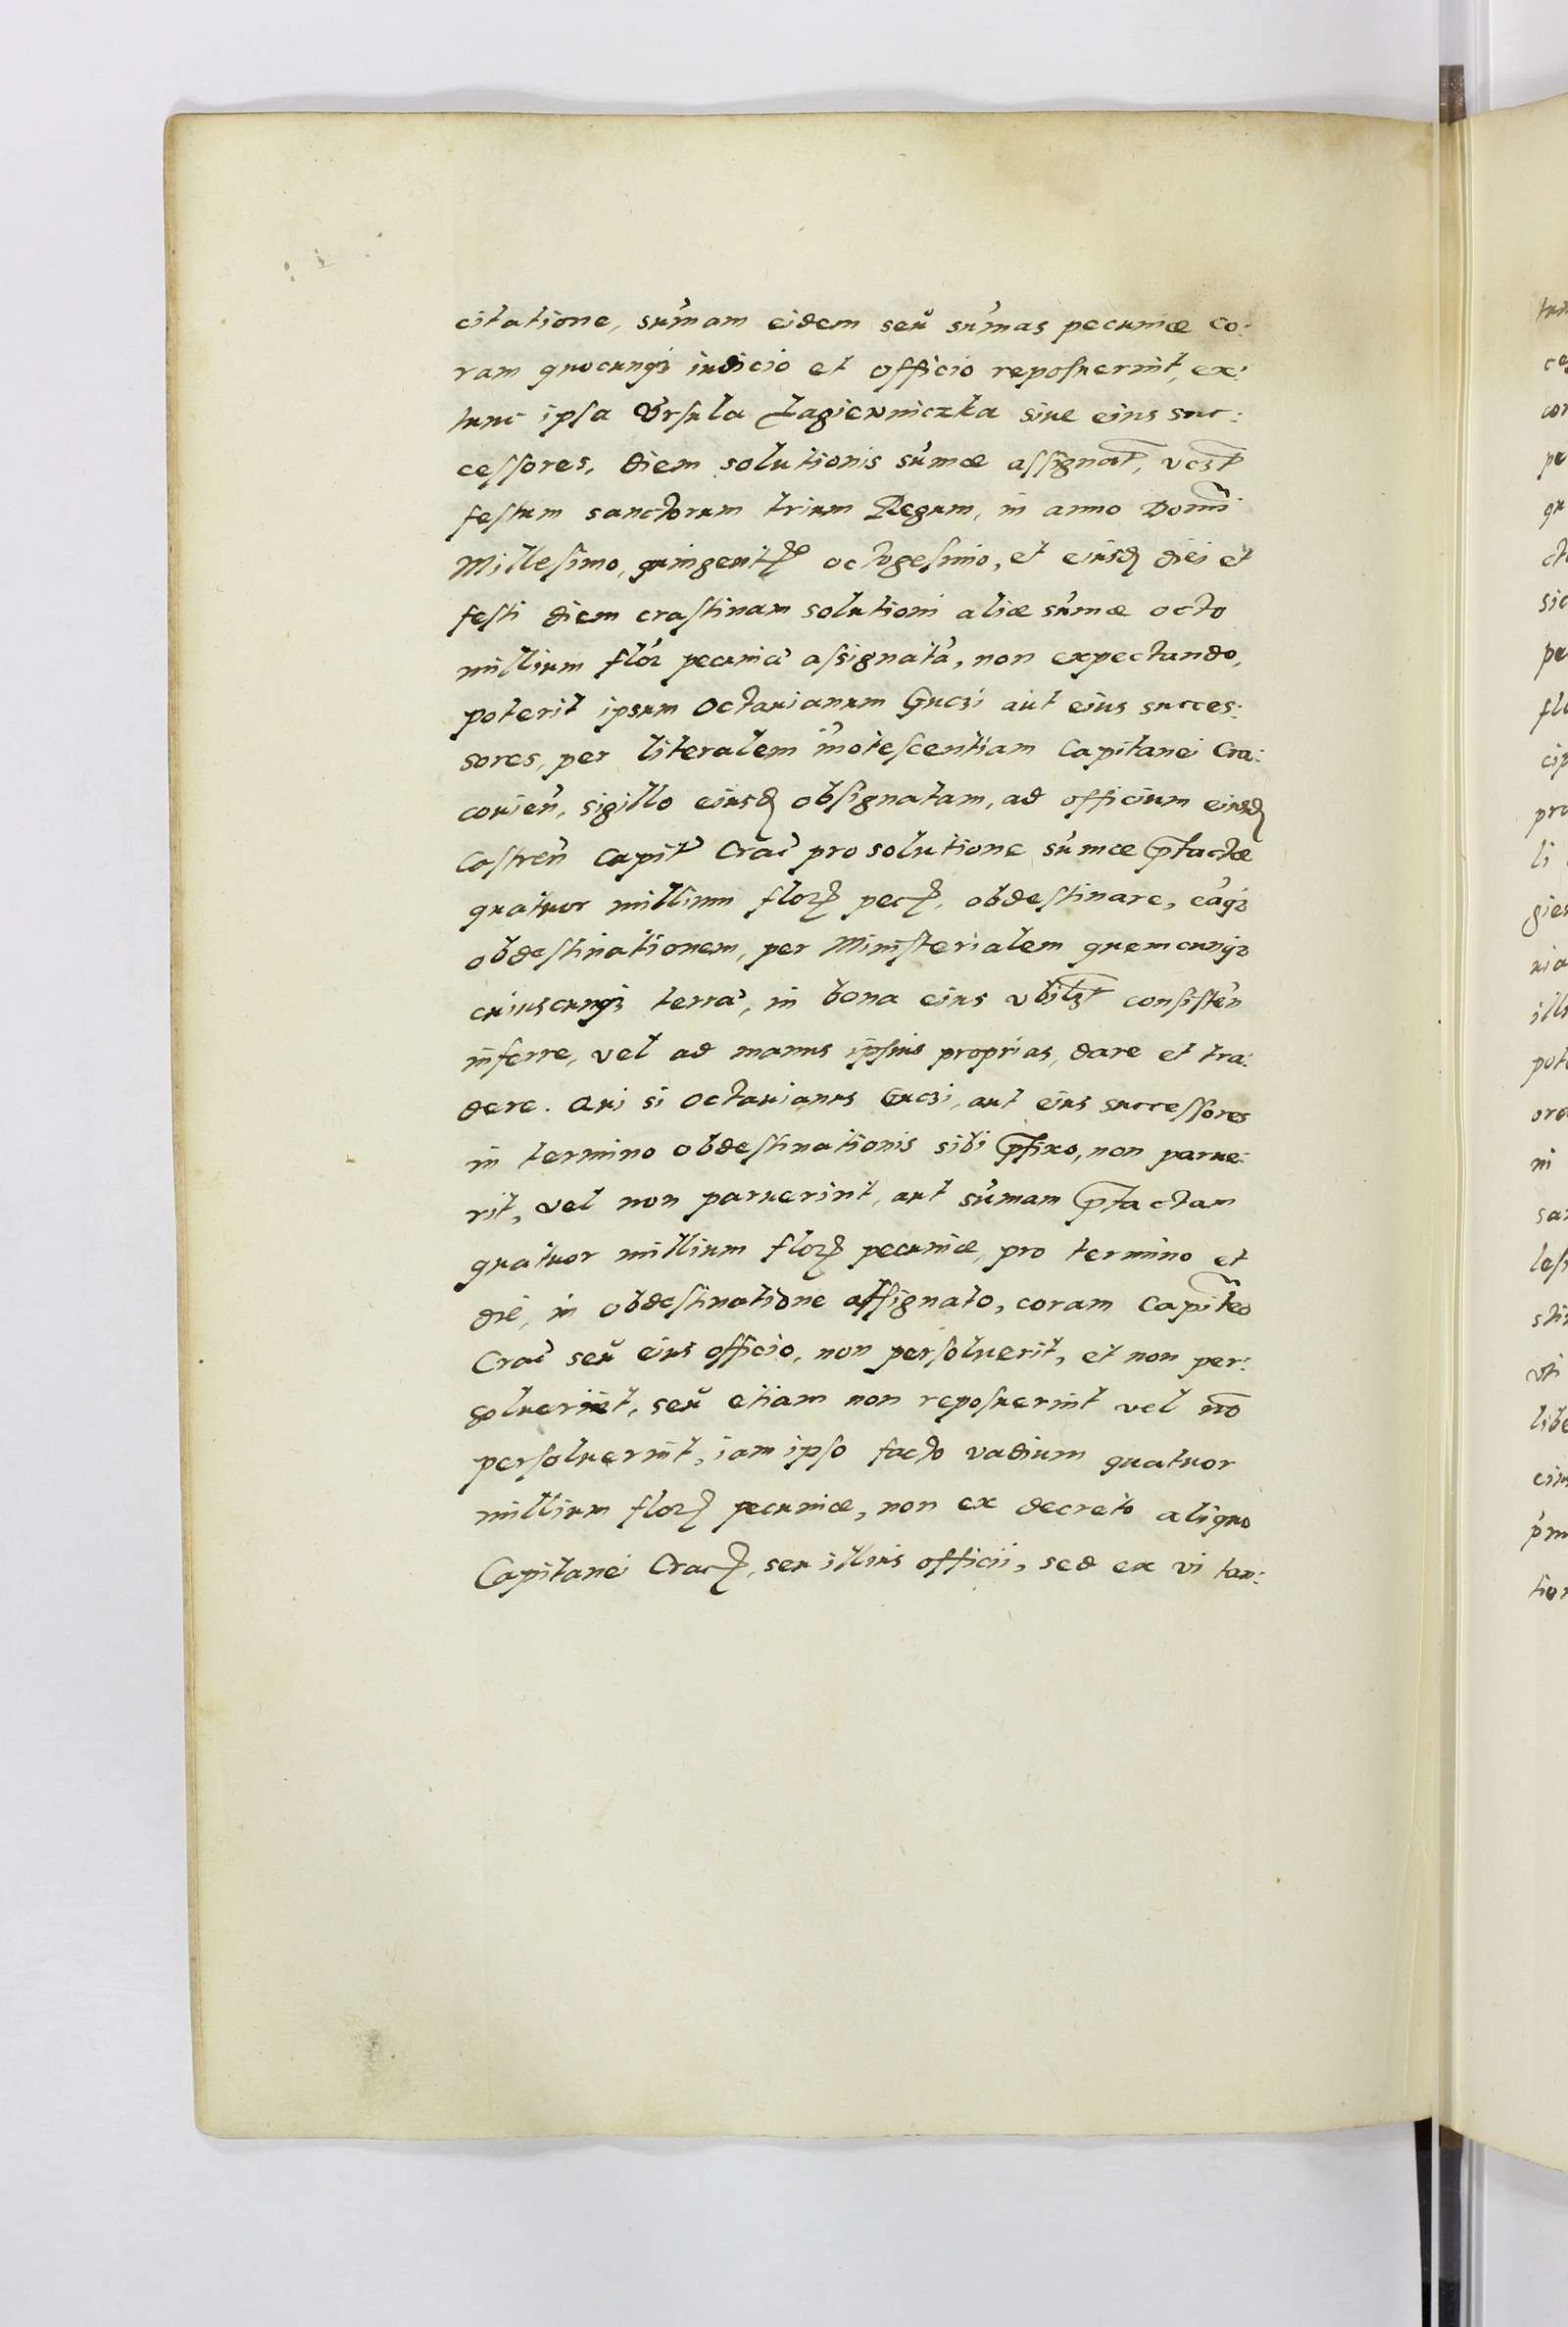 citatione, sum̄am eidem seu sum̄as pecuniæ co:
ram quocunqȝ iudicio et officio reposuerint, ex:
tunc ipsa Vrsula Lagiewniczka siue eius suc:
cessores, diem solutionis sum̄æ assignat, vcȝt
festum sanctorum trium Regum, in anno Domi
Millesimo, quingentꝭo octogesimo, et eiusd diei et
festi diem crastinam solutioni aliæ sum̄æ octo
millium flor pecuniæ assignatā, non expectando,
poterit ipsum Octauianum Gucȝi aut eius succes:
sores, per literalem in̄otescentiam Capitanei Cra:
couien̄, sigillo eiusd obsignatam, ad officium eiusd
Castren̄ Capit Crac̄ pro solutione sum̄æ p̄tactæ
quatuor millium florꝭ pecꝭ, obdestinare, eāqȝ
obdestinationem, per Ministerialem quemcunqȝ
cuiuscunqȝ terræ, in bona eius vbilȝt consisten̄
inferre, vel ad manus ipsius proprias, dare et tra:
dere. Qui si Octauianus Gucȝi, aut eius successores
in termino obdestinationis sibi p̄fixo, non parue:
rit, vel non paruerint, aut sum̄am p̄tactam
quatuor millium florꝭ pecuniæ, pro termino et
die, in obdestinatione assignato, coram Capiteo
Crac̄ seu eius officio, non persoluerit, et non per:
soluerint, seu etiam non reposuerint vel nō
persoluerint, iam ipso facto vadium quatuor
millium florꝭ pecuniæ, non ex decreto aliquo
Capitanei Cracꝭ, seu illius officii, sed ex vi tan: